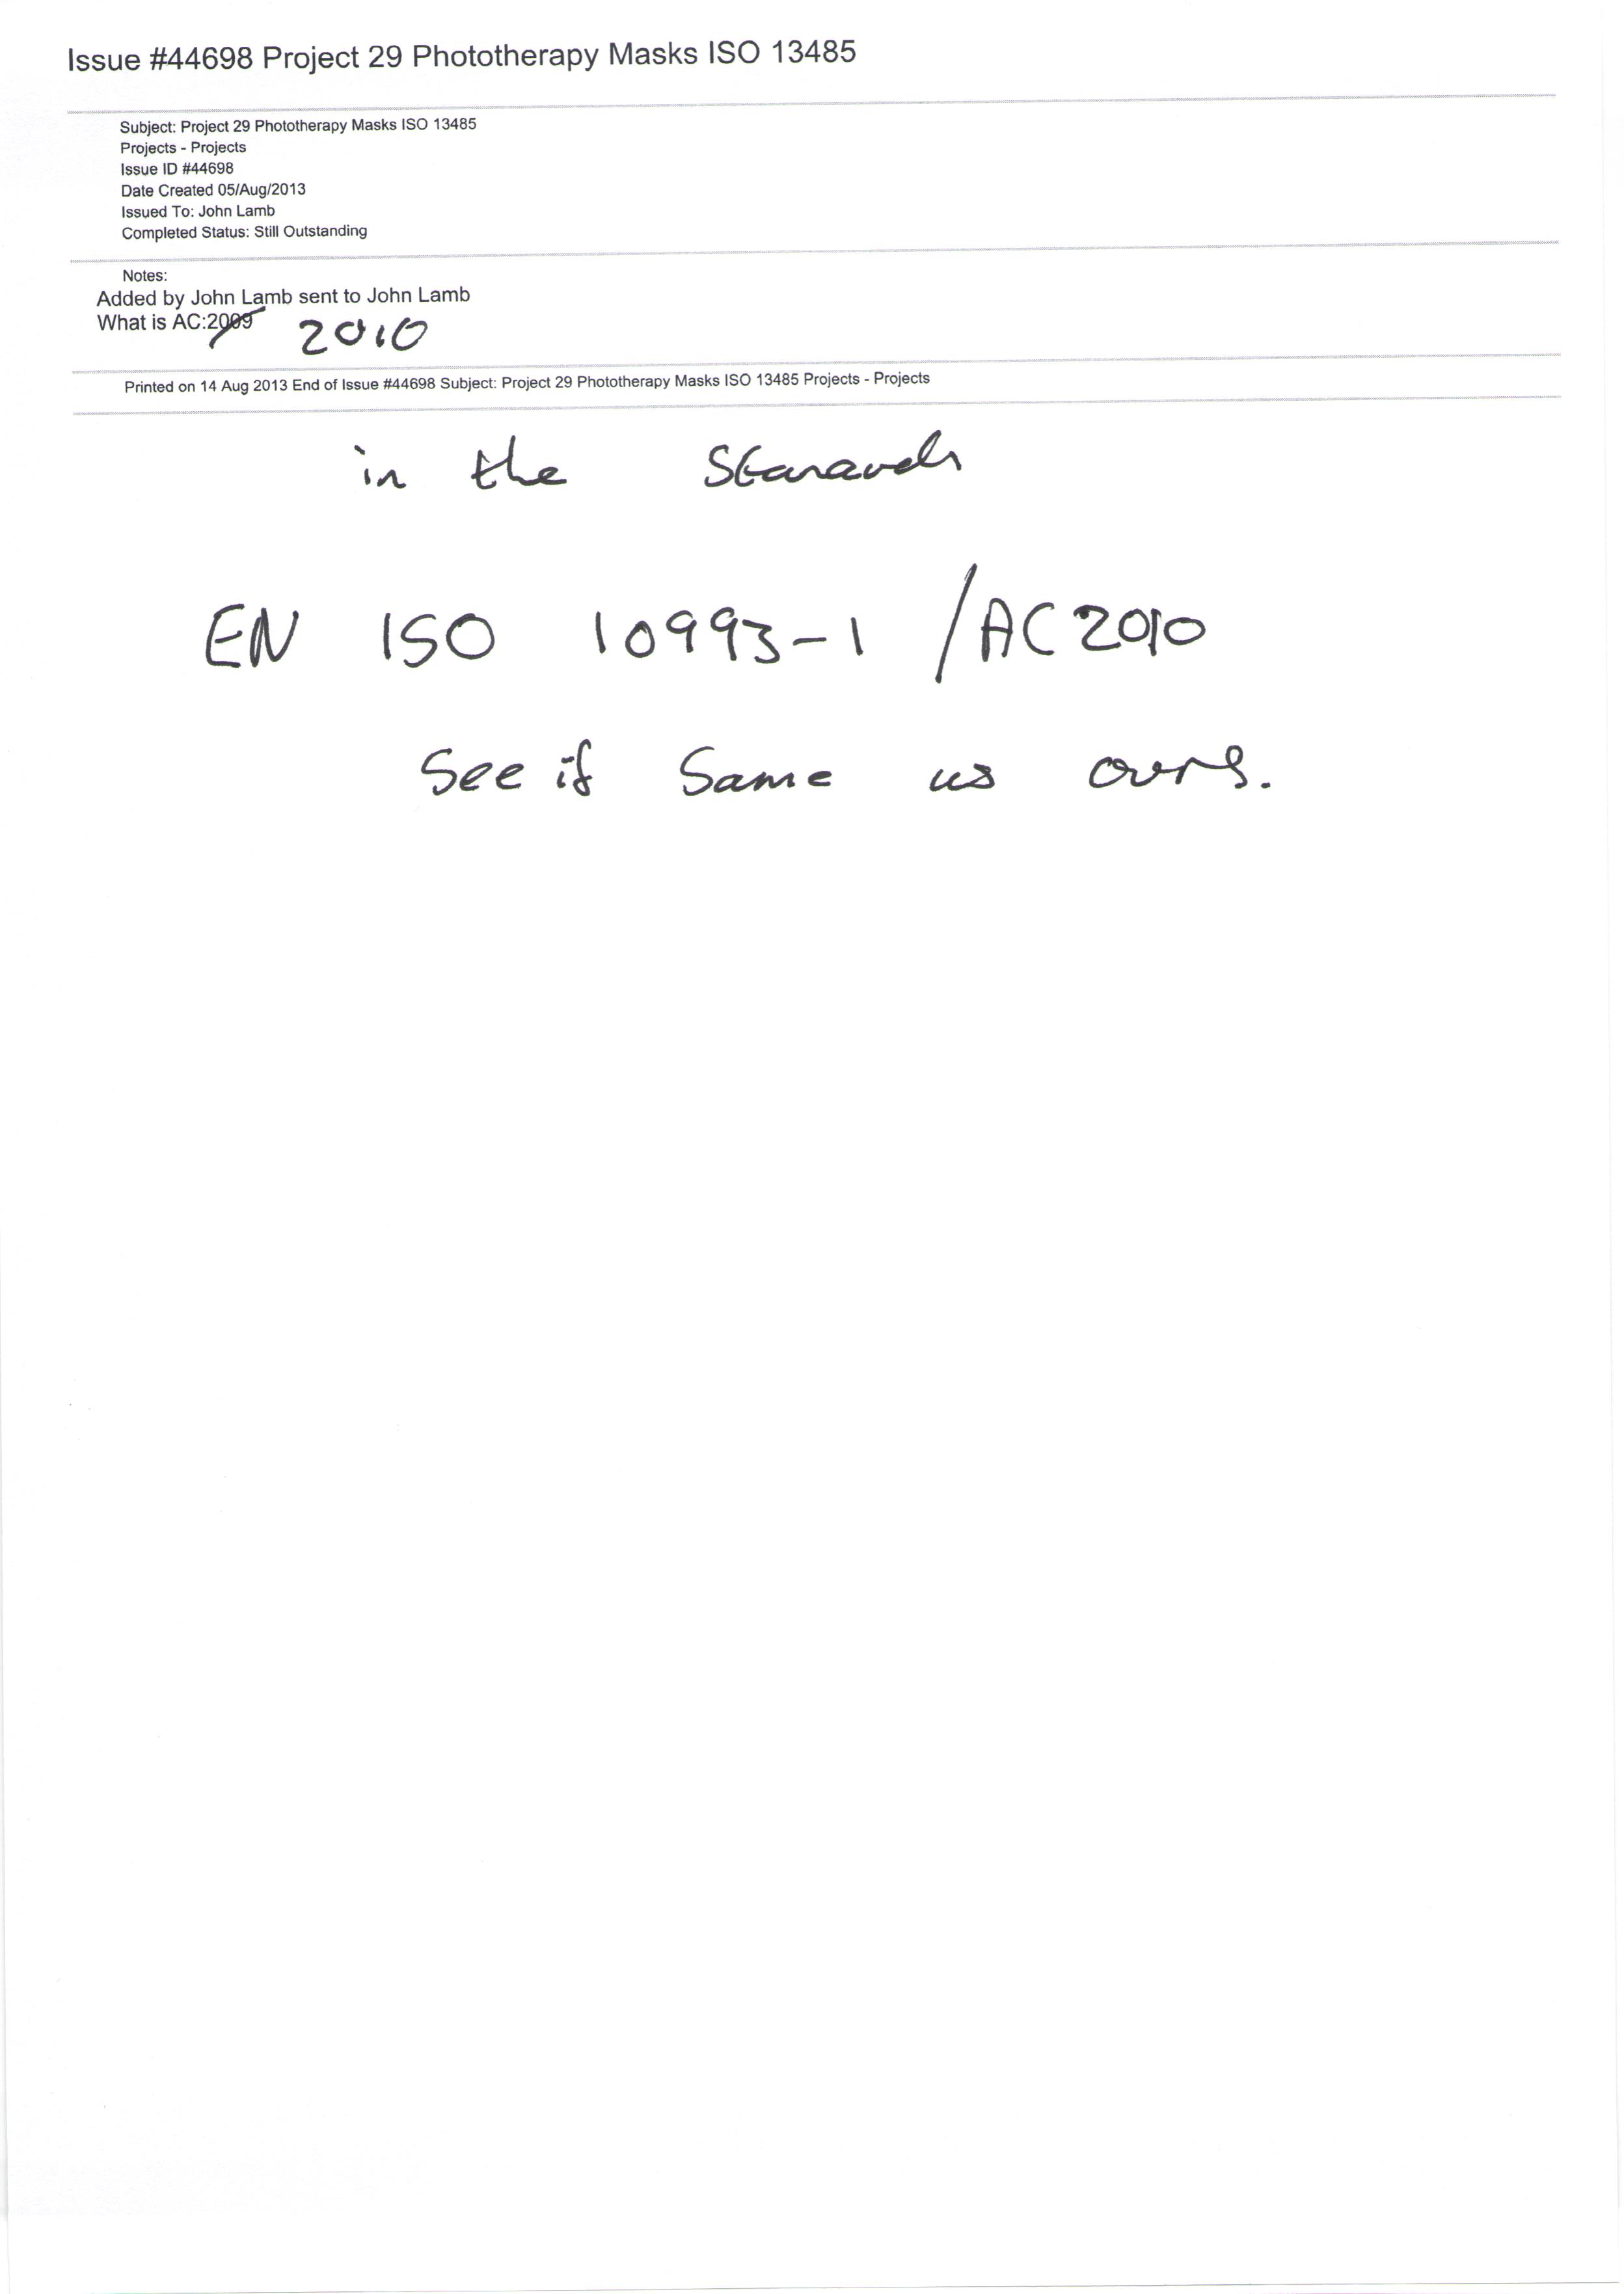 Issue #44698 Project 29 Phototherapy Masks ISO 13485
Subject: Project 29 Phototherapy Masks ISO 13485
Projects - Projects
Issue ID #44698
Date Created 05/Aug/2013
Issued To: John Lamb
Completed Status: Still Outstanding
Notes:
Added by John Lamb sent to John Lamb
What is AC:2009 2010
Printed on 14 Aug 2013 End of Issue #44698 Subject: Project 29 Phototherapy Masks ISO 13485 Projects - Projects
in the
EN ISO 10993-1 /AC2010
See if Same us ours.